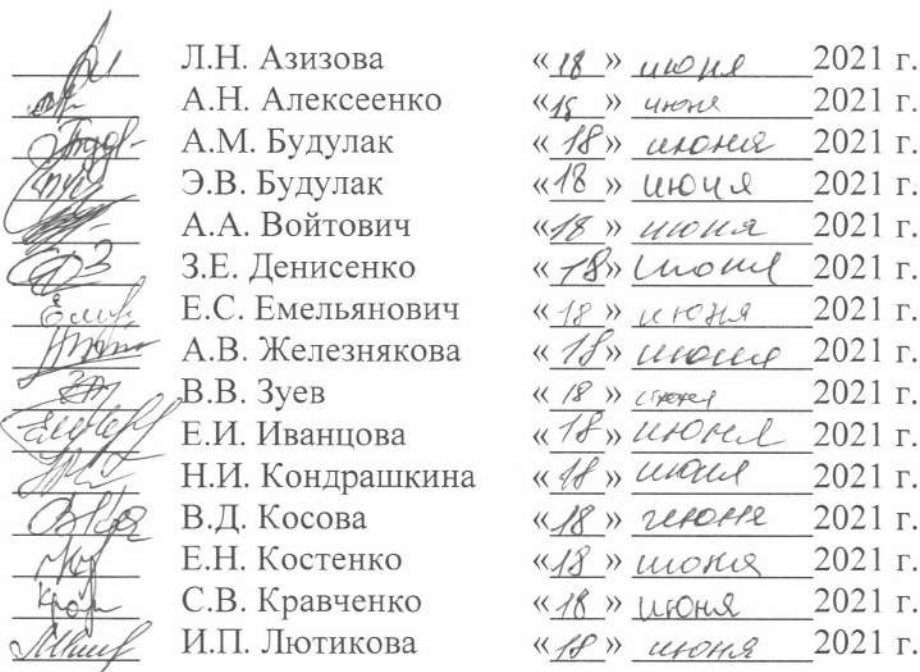 Л.Н. Азизова «18» июня 2021 г.
А.Н. Алексеенко «15» июня 2021 г.
А.М. Будулак «18» июня 2021 г.
Э.В. Будулак «18» июня 2021 г.
А.А. Войтович «18» июня 2021 г.
З.Е. Денисенко «18» июня 2021 г.
Е.С. Емельянович «18» июня 2021 г.
А.В. Железнякова «18» июня 2021 г.
В.В. Зуев «18» июня 2021 г.
Е.И. Иванцова «18» июня 2021 г.
Н.И. Кондрашкина «18» июня 2021 г.
В.Д. Косова «18» июня 2021 г.
Е.Н. Костенко «18» июня 2021 г.
С.В. Кравченко «18» июня 2021 г.
И.П. Лютикова «18» июня 2021 г.